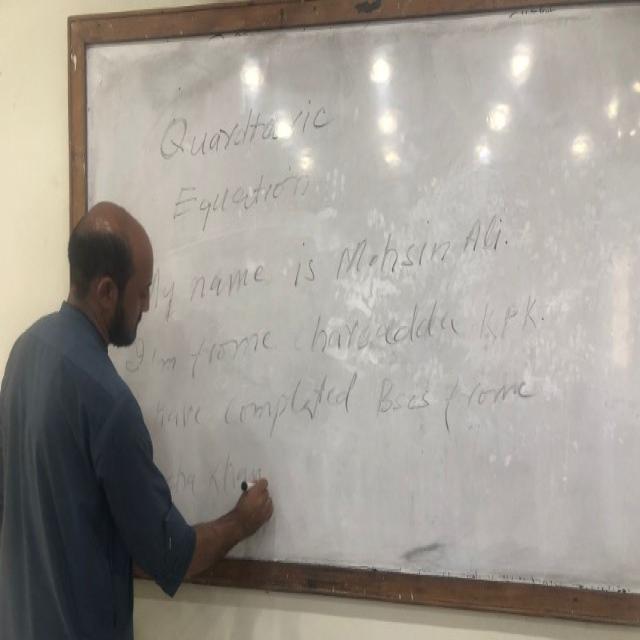 Quardtauic
Equation
My name is Mohsin Ali.
I'm frome charsadda K.P.K.
have complated Bscs frome
cha Khan